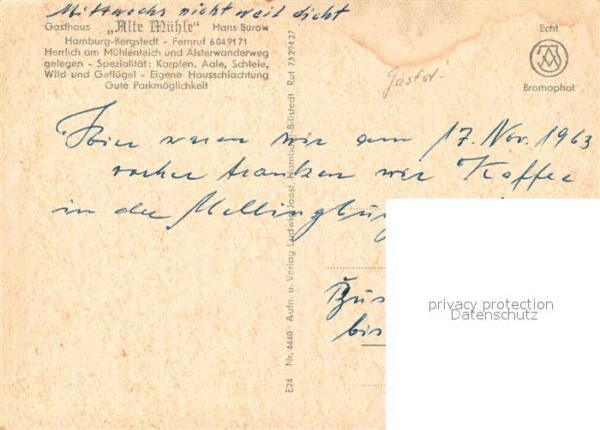 Mittwochs nicht weil dicht
Gasthaus „Alte Mühle“ Hans Burow
Hamburg-Bergstedt - Fernruf 6049171
Herrlich am Mühlenteich und Alsterwanderweg
gelegen - Spezialität: Karpfen, Aale, Schleie,
Wild und Geflügel - Eigene Hausschlachtung
Gute Parkmöglichkeit
Echt
Bromophot
Hier waren wir am 17. Nov. 1963
vorher tranken wir Kaffee
in der Mellingbur
bis
E24 Nr. 4440 Aufn. u. Verlag Ludwig Joost, Hamburg-Billstedt Ruf 73 294 27
privacy protection
Datenschutz